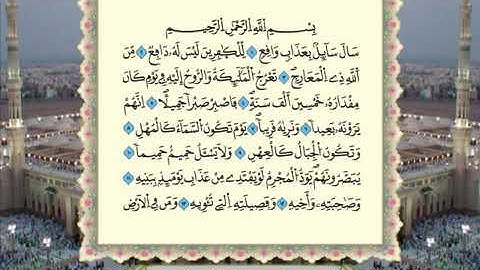 بِسْمِ اللَّهِ الرَّحْمَٰنِ الرَّحِيمِ
سَأَلَ سَآئِلٌۢ بِعَذَابٍ وَاقِعٍ ۝١ لِّلْكَٰفِرِينَ لَيْسَ لَهُۥ دَافِعٌ ۝٢ مِّنَ
ٱللَّهِ ذِى ٱلْمَعَارِجِ ۝٣ تَعْرُجُ ٱلْمَلَٰٓئِكَةُ وَٱلرُّوحُ إِلَيْهِ فِى يَوْمٍ كَانَ
مِقْدَارُهُۥ خَمْسِينَ أَلْفَ سَنَةٍ ۝٤ فَٱصْبِرْ صَبْرًا جَمِيلًا ۝٥ إِنَّهُمْ
يَرَوْنَهُۥ بَعِيدًا ۝٦ وَنَرَىٰهُ قَرِيبًا ۝٧ يَوْمَ تَكُونُ ٱلسَّمَآءُ كَٱلْمُهْلِ ۝٨
وَتَكُونُ ٱلْجِبَالُ كَٱلْعِهْنِ ۝٩ وَلَا يَسْـَٔلُ حَمِيمٌ حَمِيمًا ۝١٠
يُبَصَّرُونَهُمْ يَوَدُّ ٱلْمُجْرِمُ لَوْ يَفْتَدِى مِنْ عَذَابِ يَوْمِئِذٍۭ بِبَنِيهِ ۝١١
وَصَٰحِبَتِهِۦ وَأَخِيهِ ۝١٢ وَفَصِيلَتِهِ ٱلَّتِى تُـْٔوِيهِ ۝١٣ وَمَن فِى ٱلْأَرْضِ